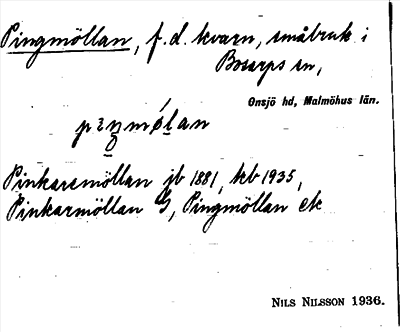 Pingmöllan, f.d. kvarn, småbruk i
Bosarps sn,
Onsjö hd, Malmöhus län.
pɪŋmølan
Pinkaremöllan jb 1881, kb 1935,
Pinkarmöllan G, Pingmöllan ek
NILS NILSSON 1936.